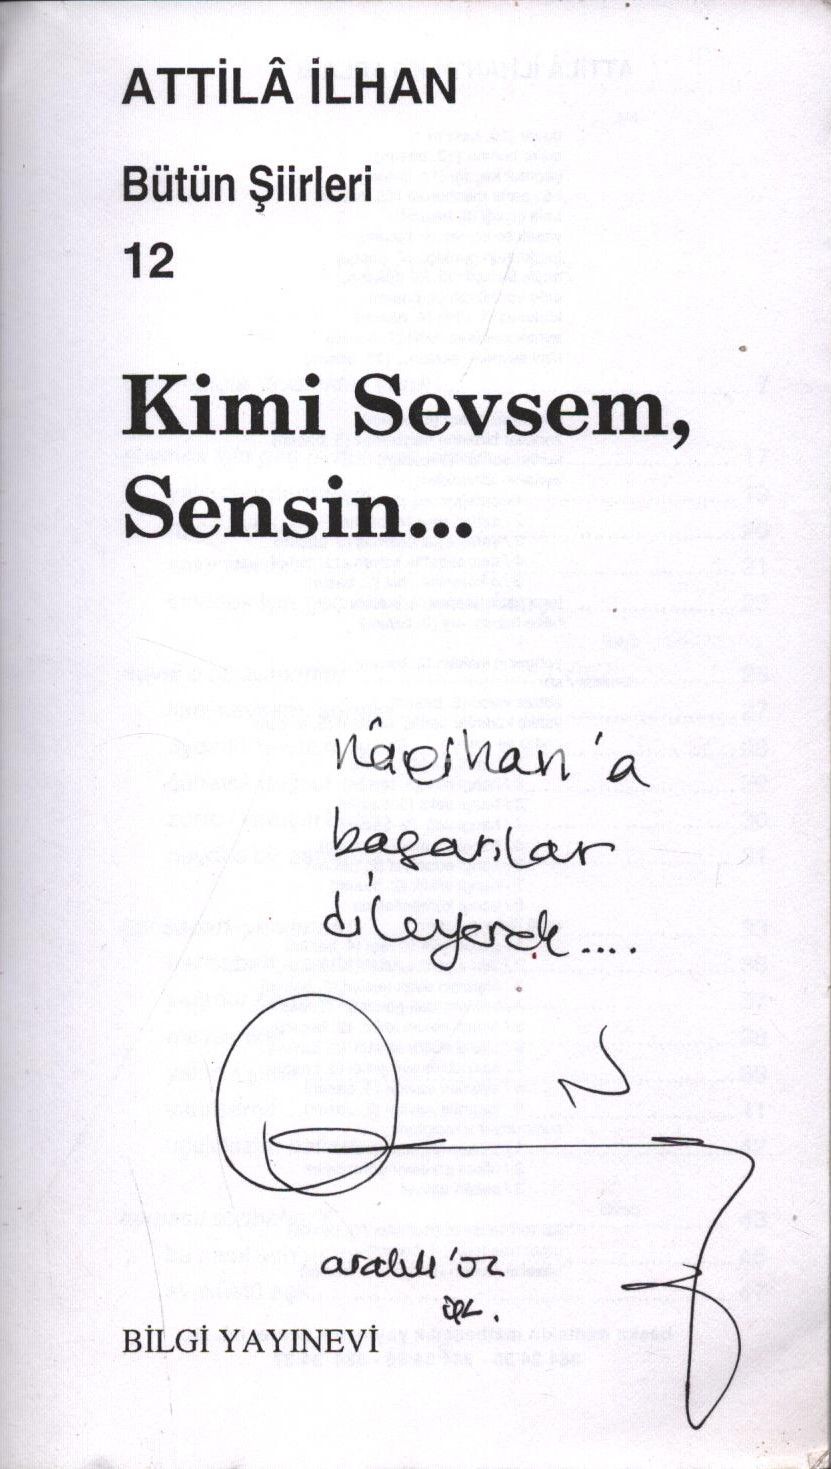 ATTİLÂ İLHAN
Bütün Şiirleri
12
Kimi Sevsem,
Sensin...
başarılar
dileyerek....
aralık '02
BİLGİ YAYINEVİ